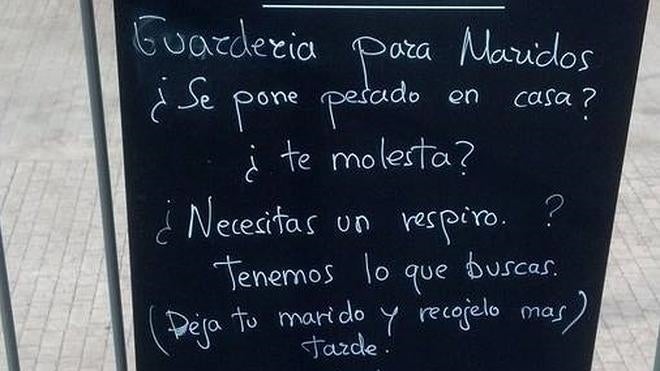 Guarderia para Maridos
¿Se pone pesado en casa?
¿te molesta?
¿Necesitas un respiro. ?
Tenemos lo que buscas.
(Deja tu marido y recojelo mas)
tarde.